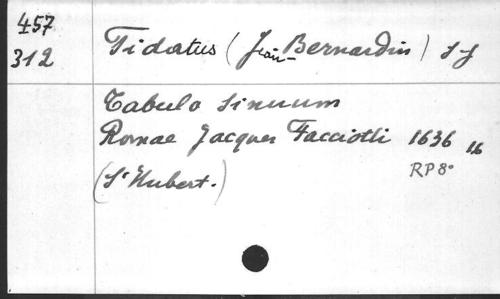 457
312
Fidatus (Jean-Bernardin) S-J
Tabula Sinuum
Romae Jacques Facciotti 1636 16
RP 8°
(St Hubert.)